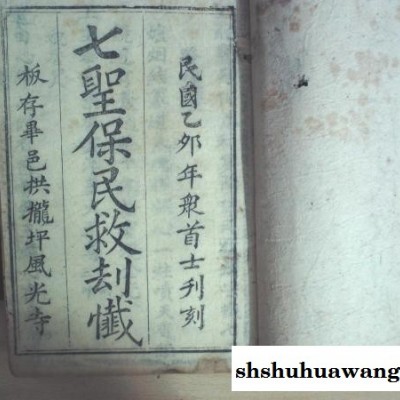 民國乙卯年眾首士刊刻
七聖保民救刦懺
板存畢邑拱攏坪風光寺
shshuhuawang